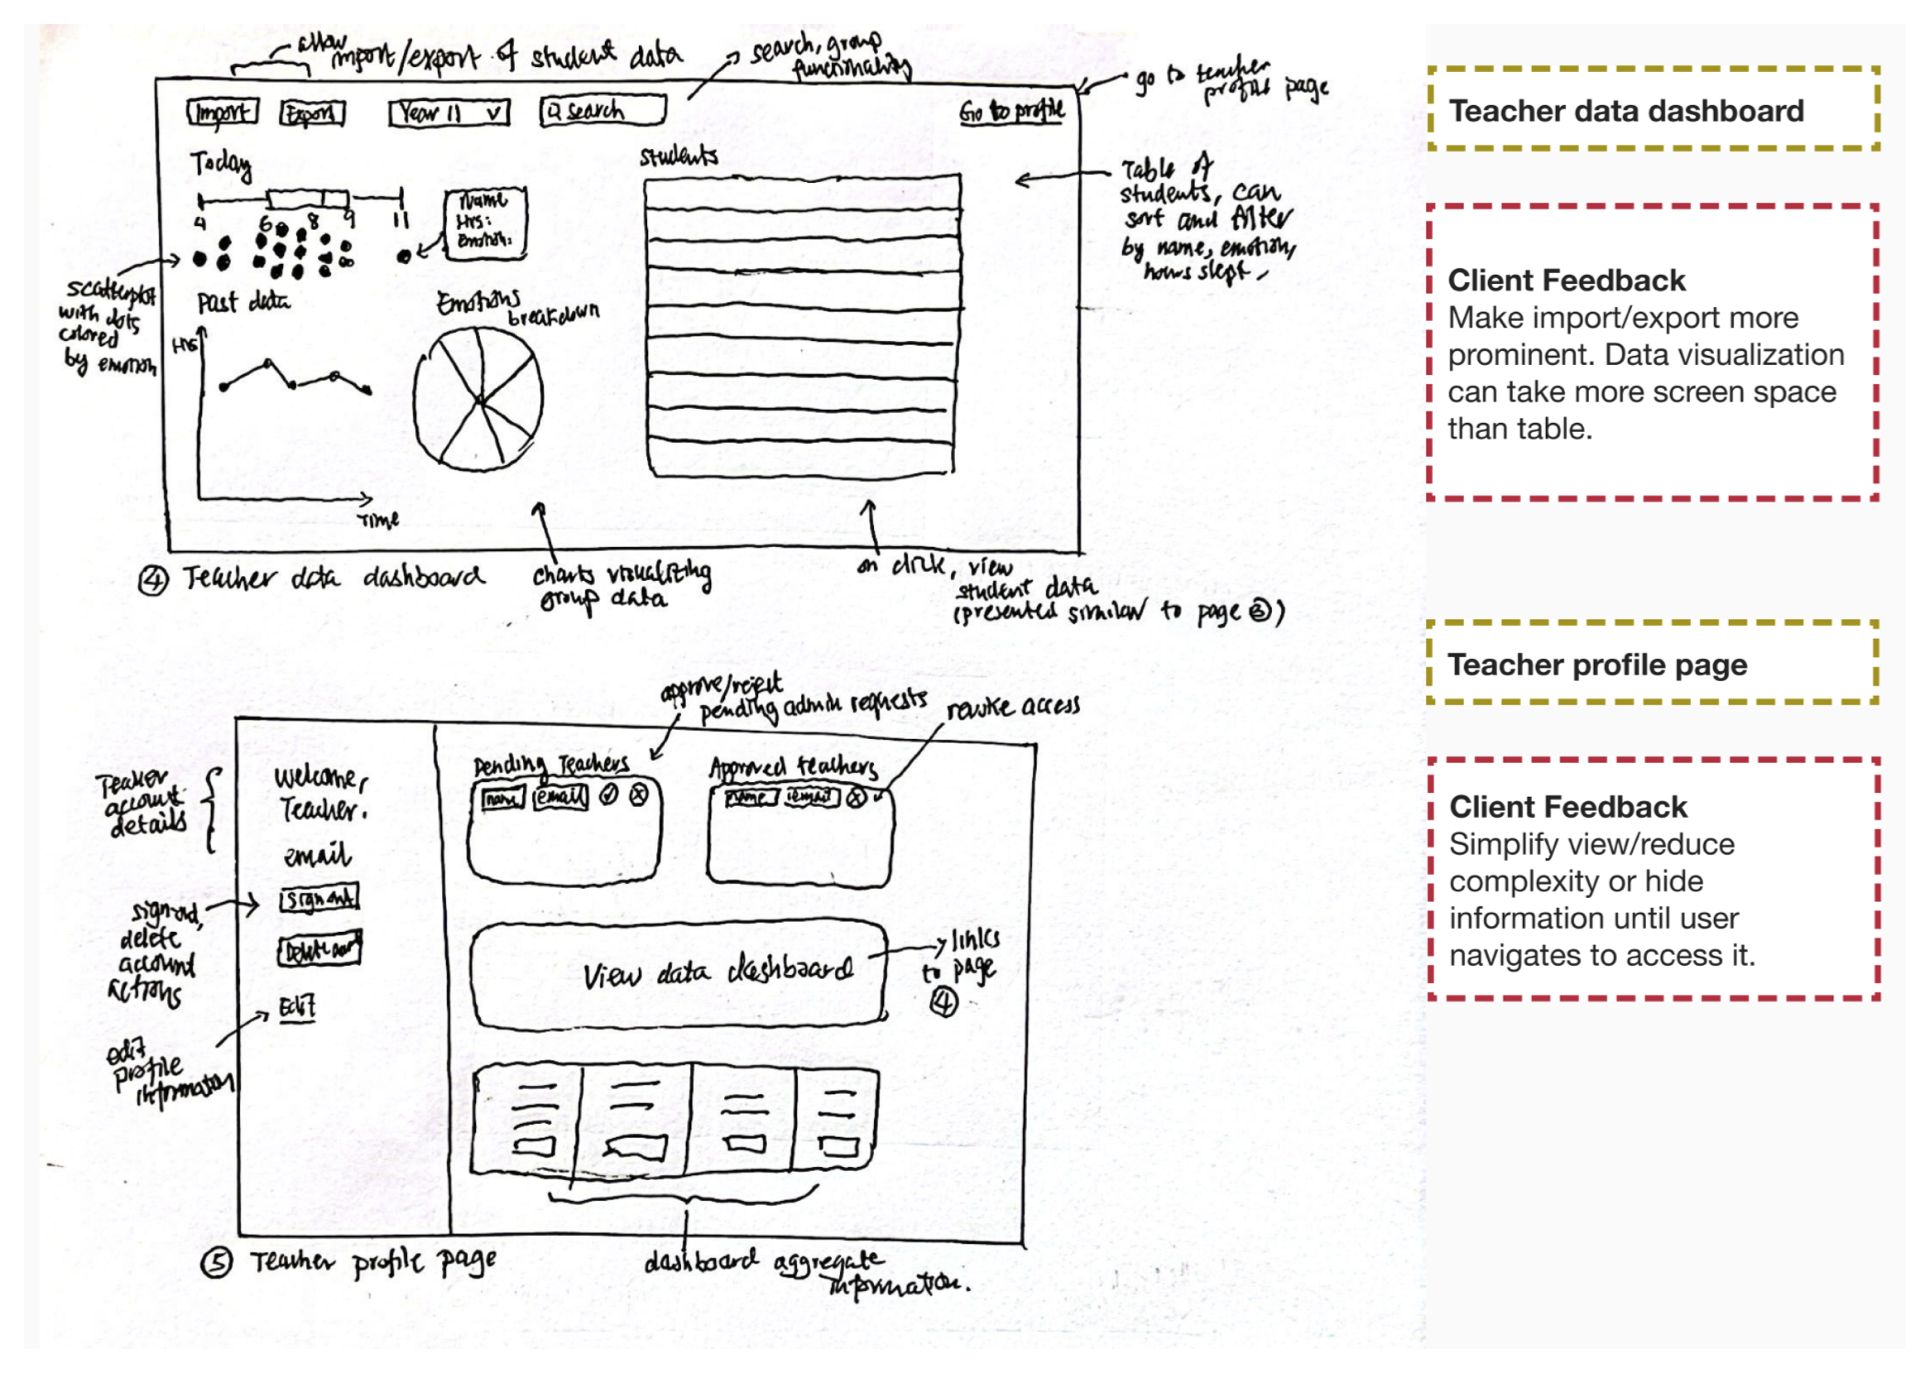 allow
import/export of student data
search, group
functionality
go to teacher
profile page
Import
Export
Year 11 v
Search
Go to profile
Today
4
6
8
9
11
Name
Hrs:
Emotion:
Students
Table of
students, can
sort and filter
by name, emotion,
hours slept.
scatterplot
with dots
colored
by emotion
Past data
Hrs
Time
Emotions
breakdown
4 Teacher data dashboard
charts visualizing
group data
on click, view
student data
(presented similar to page 3)
Teacher data dashboard
Client Feedback
Make import/export more
prominent. Data visualization
can take more screen space
than table.
approve/reject
pending admin requests
revoke access
Teacher
account
details
Welcome,
Teacher.
email
Sign out
Edit
sign out,
delete
account
actions
edit
profile
information
Pending Teachers
name email
Approved teachers
name email
View data dashboard
links
to page
4
5 Teacher profile page
dashboard aggregate
information.
Teacher profile page
Client Feedback
Simplify view/reduce
complexity or hide
information until user
navigates to access it.